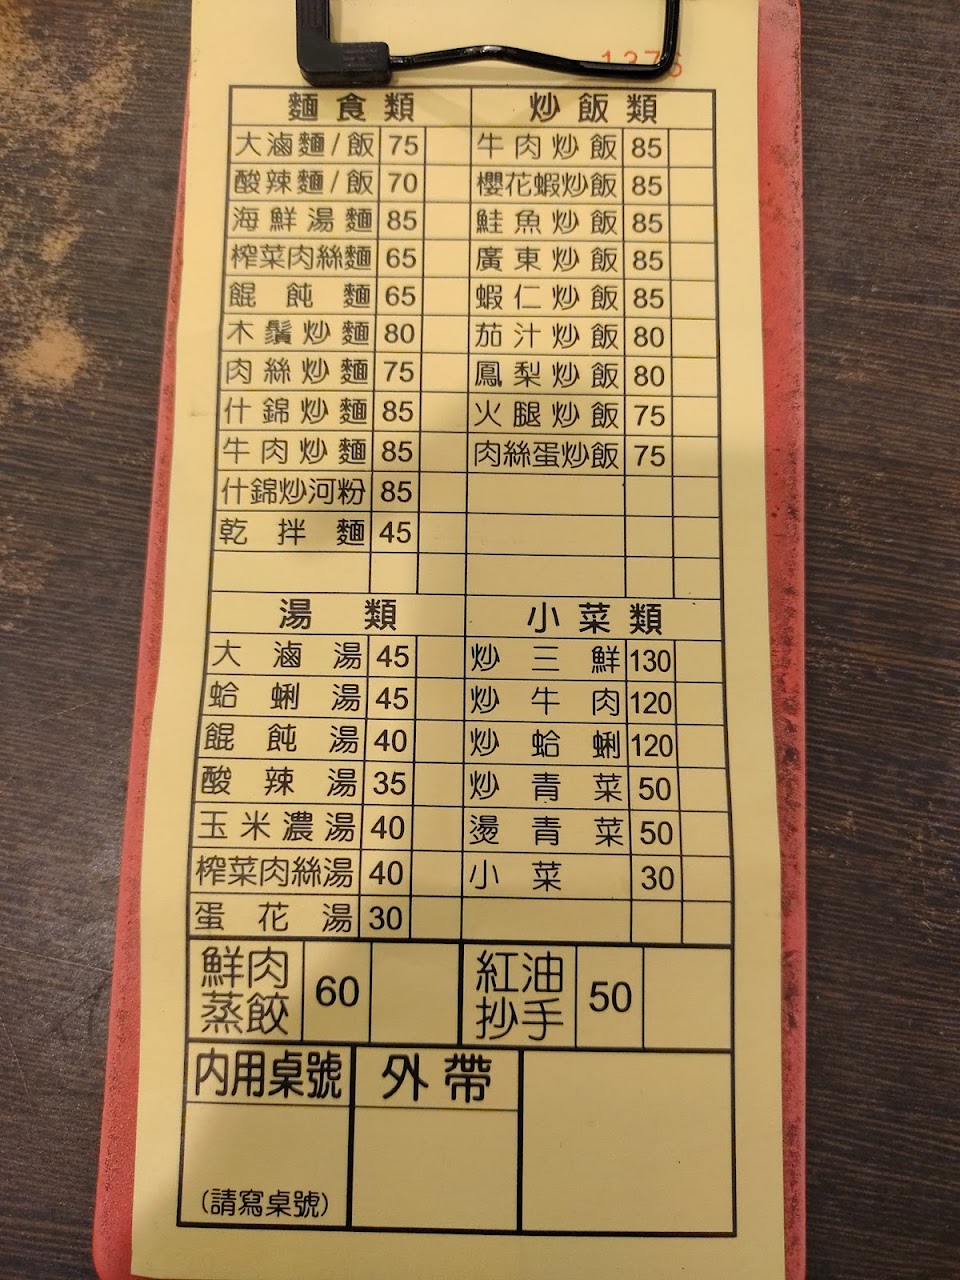 1376
麵食類
大滷麵/飯 75
酸辣麵/飯 70
海鮮湯麵 85
榨菜肉絲麵 65
餛飩麵 65
木鬚炒麵 80
肉絲炒麵 75
什錦炒麵 85
牛肉炒麵 85
什錦炒河粉 85
乾拌麵 45
炒飯類
牛肉炒飯 85
櫻花蝦炒飯 85
鮭魚炒飯 85
廣東炒飯 85
蝦仁炒飯 85
茄汁炒飯 80
鳳梨炒飯 80
火腿炒飯 75
肉絲蛋炒飯 75
湯類
大滷湯 45
蛤蜊湯 45
餛飩湯 40
酸辣湯 35
玉米濃湯 40
榨菜肉絲湯 40
蛋花湯 30
小菜類
炒三鮮 130
炒牛肉 120
炒蛤蜊 120
炒青菜 50
燙青菜 50
小菜 30
鮮肉
蒸餃 60
紅油
抄手 50
內用桌號
(請寫桌號)
外帶